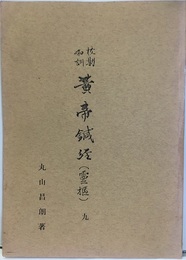 校勘
和訓
黄帝鍼経(霊枢)九
丸山昌朗著